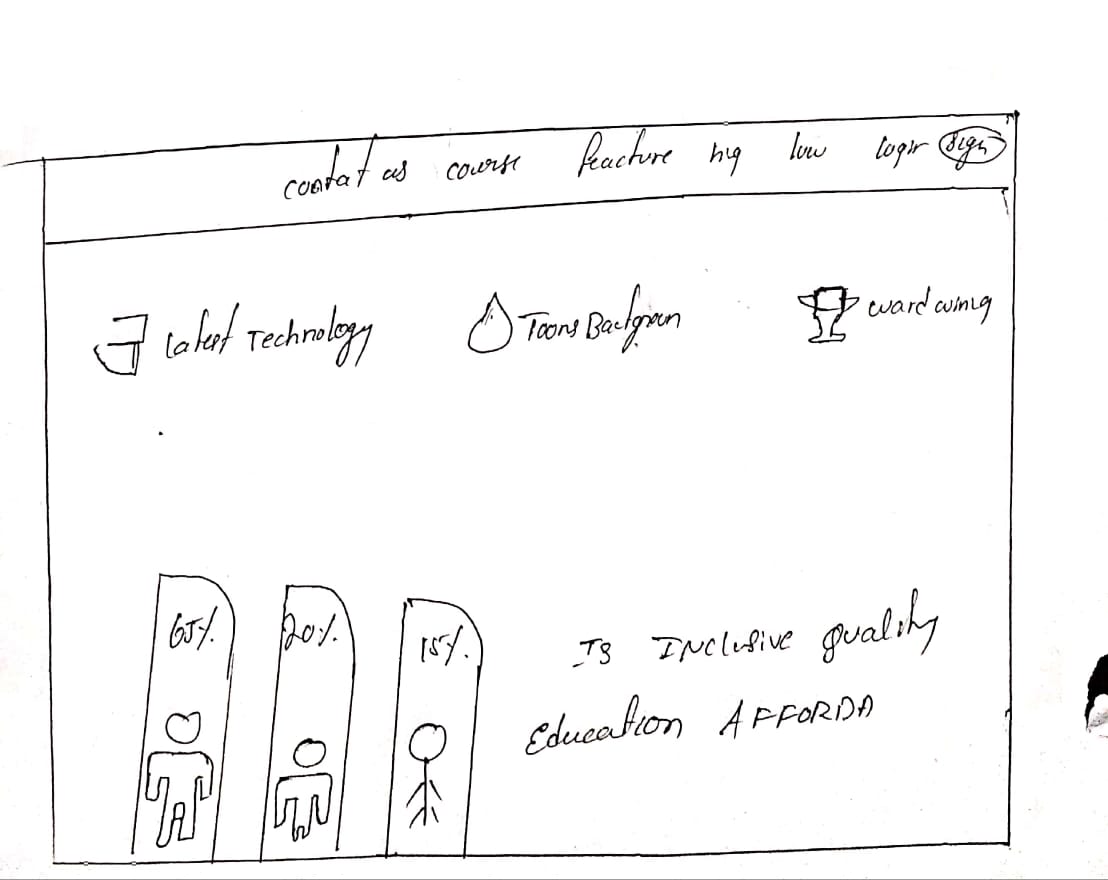 contat us course feacture hig low login Sign
Latest Technology Toons Backgroun ward wining
65% 20% 15%
Is Inclusive quality
Education AFFORDA